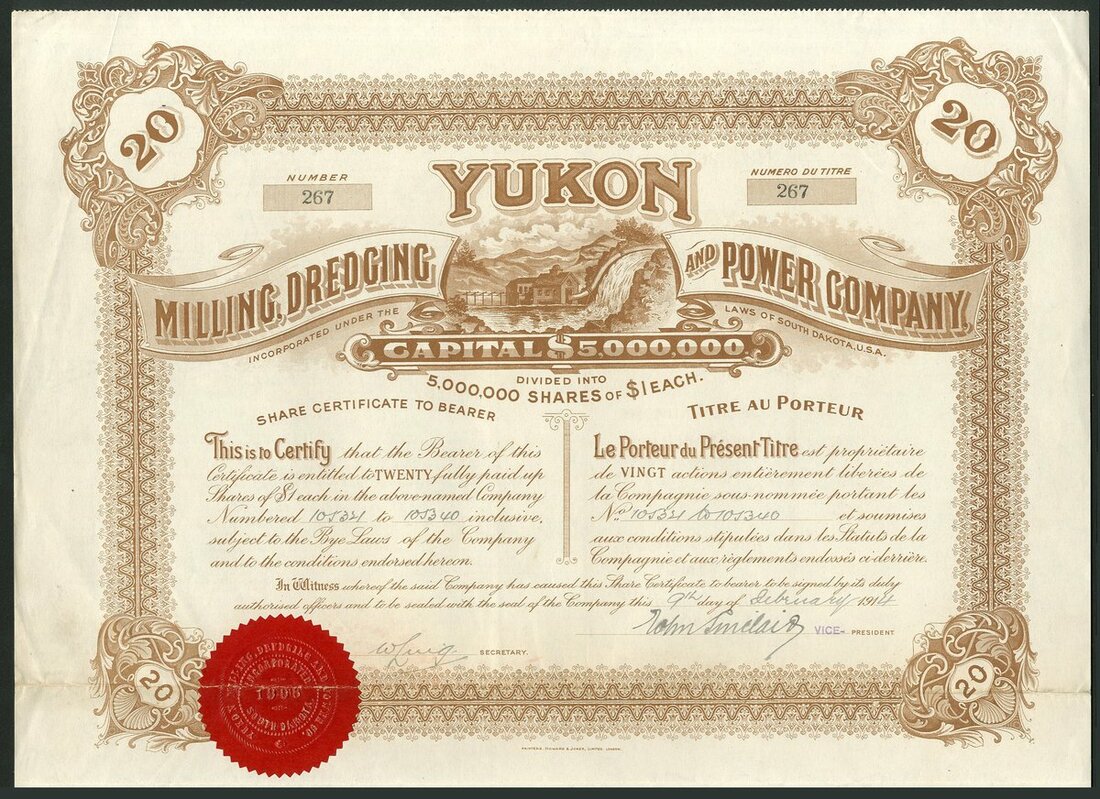 20
20
NUMBER
267
YUKON
NUMERO DU TITRE
267
MILLING, DREDGING
AND POWER COMPANY,
INCORPORATED UNDER THE
LAWS OF SOUTH DAKOTA, U.S.A.
CAPITAL $5,000,000
DIVIDED INTO
5,000,000 SHARES OF $1 EACH.
SHARE CERTIFICATE TO BEARER
This is to Certify that the Bearer of this
Certificate is entitled to TWENTY fully paid up
Shares of $1 each in the above-named Company
Numbered 105321 to 105340 inclusive,
subject to the Bye Laws of the Company
and to the conditions endorsed hereon.
TITRE AU PORTEUR
Le Porteur du Présent Titre est propriétaire
de VINGT actions entièrement libérées de
la Compagnie sous-nommée portant les
Nos 105321 to 105340 et soumises
aux conditions stipulées dans les Statuts de la
Compagnie et aux règlements endossés ci-derrière.
In Witness whereof the said Company has caused this Share Certificate to bearer to be signed by its duly
authorised officers and to be sealed with the seal of the Company this 9th day of February 1914
John Sinclair VICE- PRESIDENT
SECRETARY.
20
20
INCORPORATED
1906
SOUTH DAKOTA